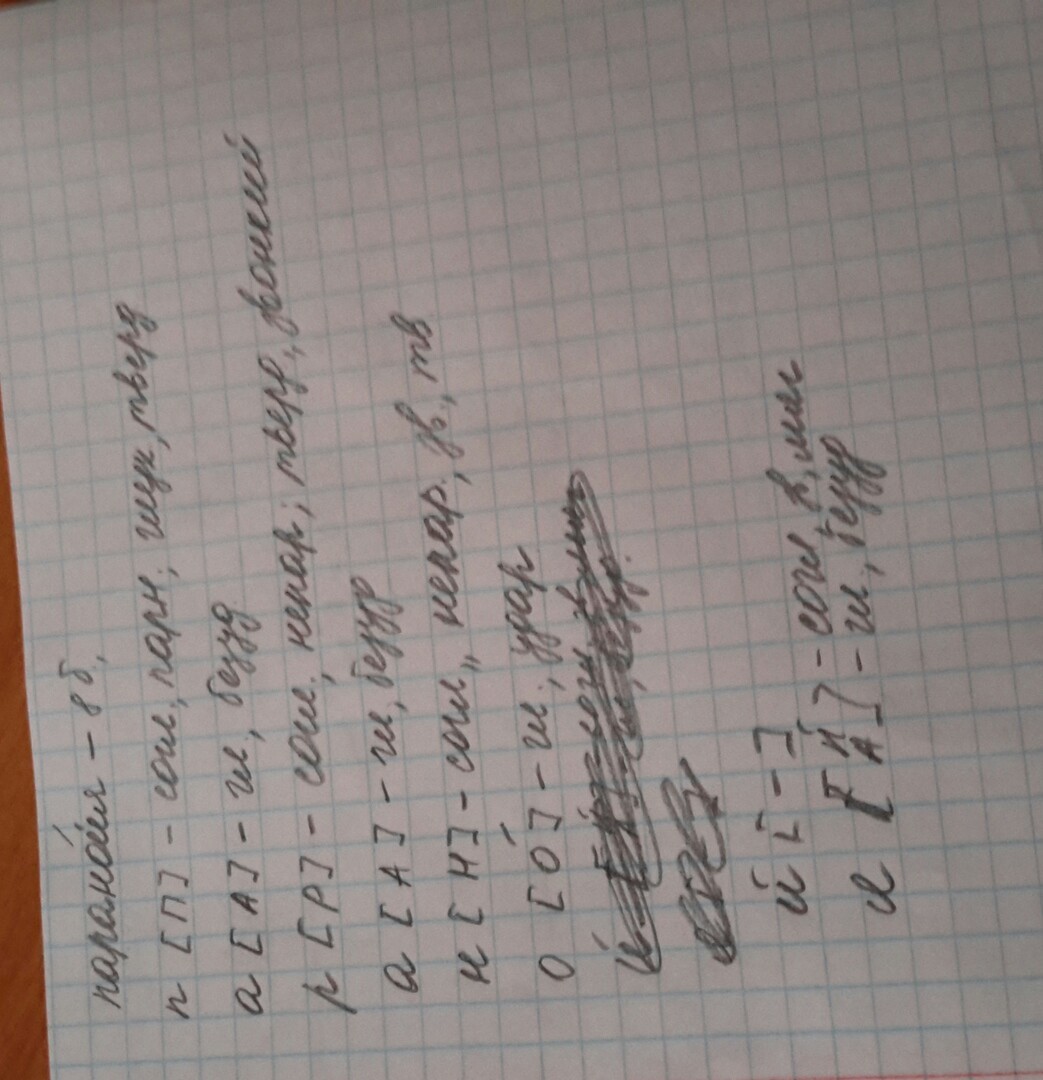 паранойя – 8 б.
п [П] – согл., парн; глух, тверд
а [А] – гл, безуд
р [Р] – согл., непар; тверд., звонкий
а [А] – гл, безуд
н [Н] – согл., непар., зв., тв
о [О́] – гл., удар
й [–]
я [Й – согл, зв, мяг
А] – гл., безуд